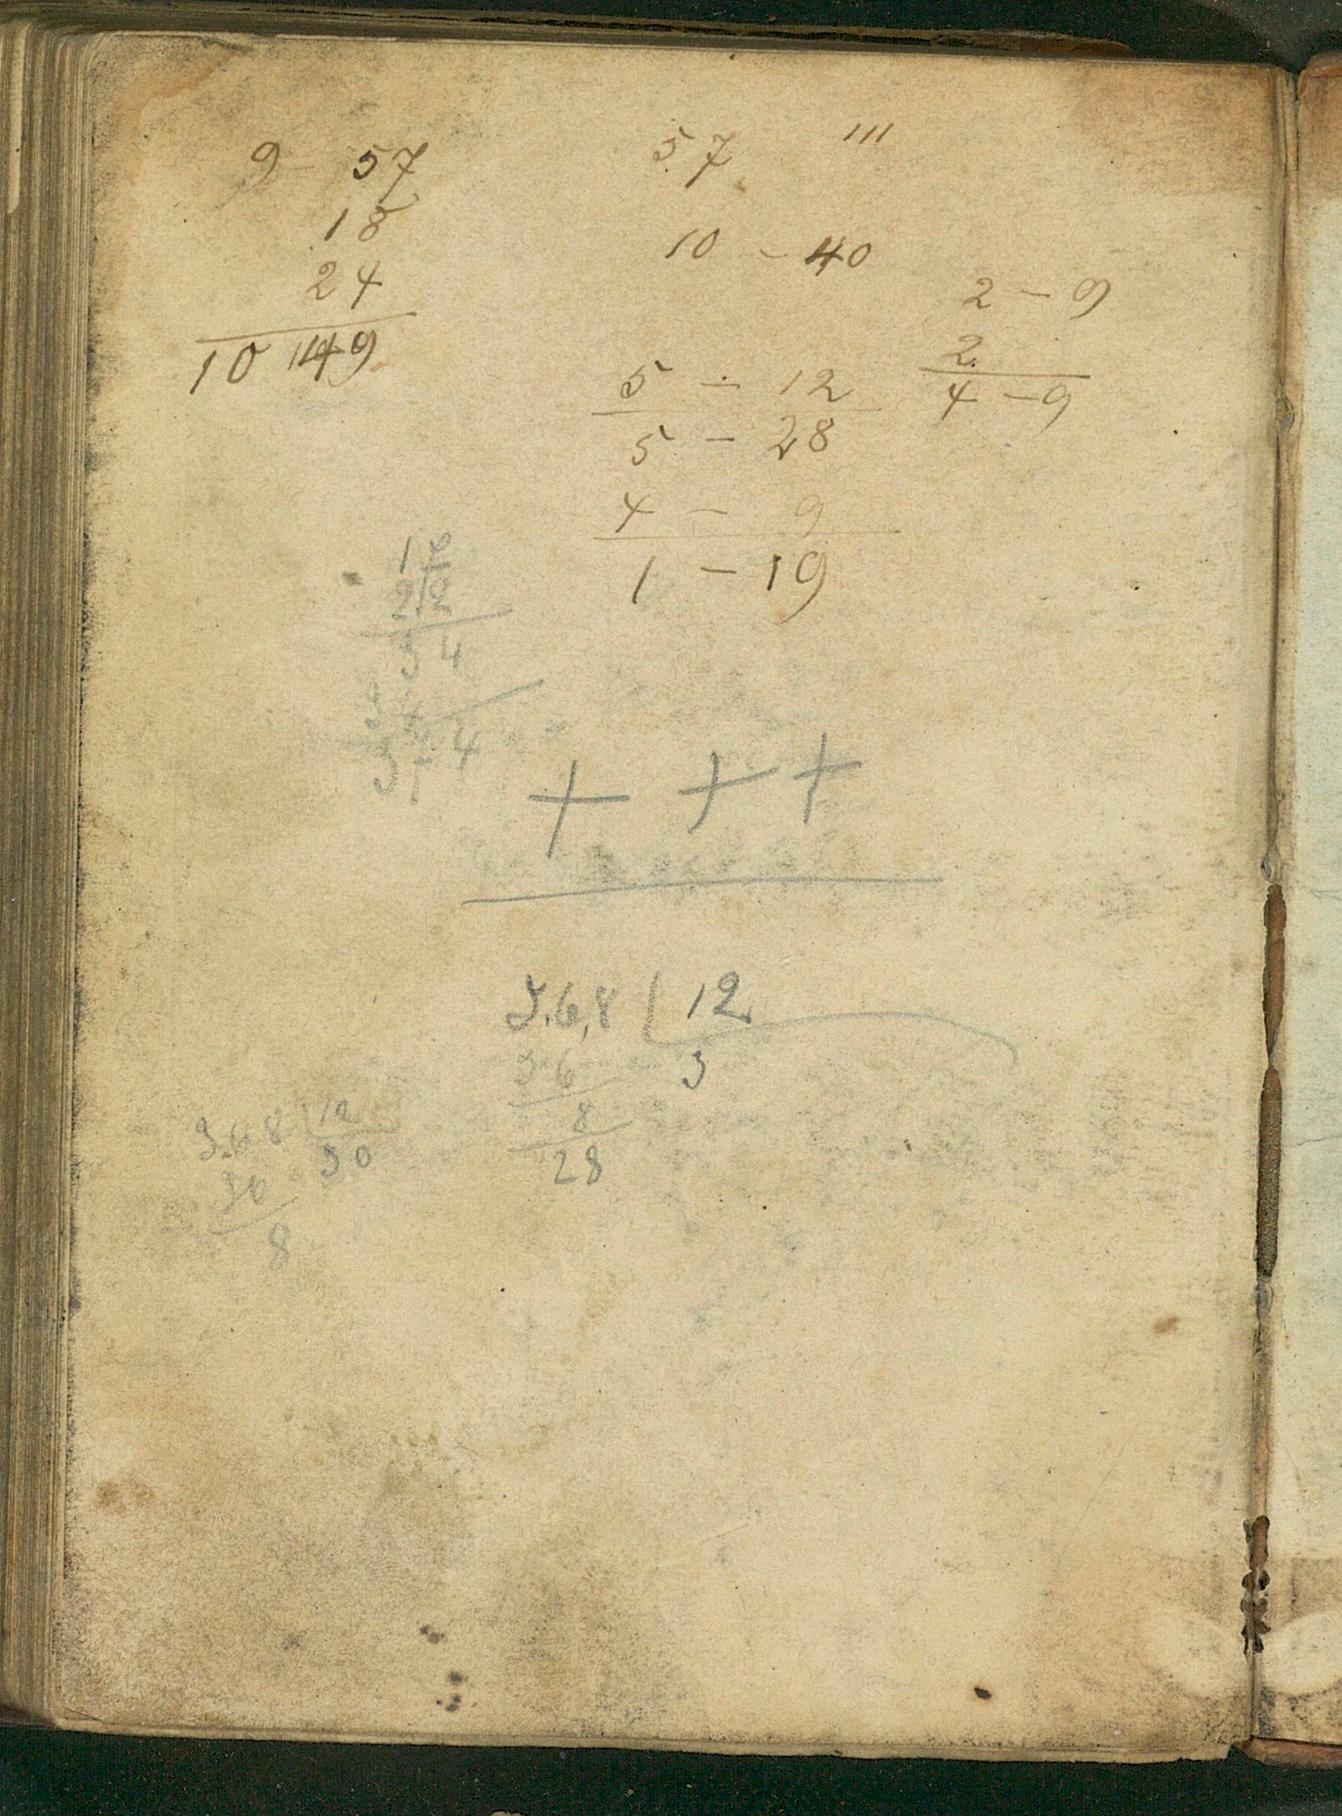 9 - 57
18
24
10 149
57 '''
10 - 40
5 - 12
5 - 28
4 - 9
1 - 19
2 - 9
2
4 - 9
3 4
374
+ + +
3.6,8 12
36 3
8
28
3.68 12
30 30
8